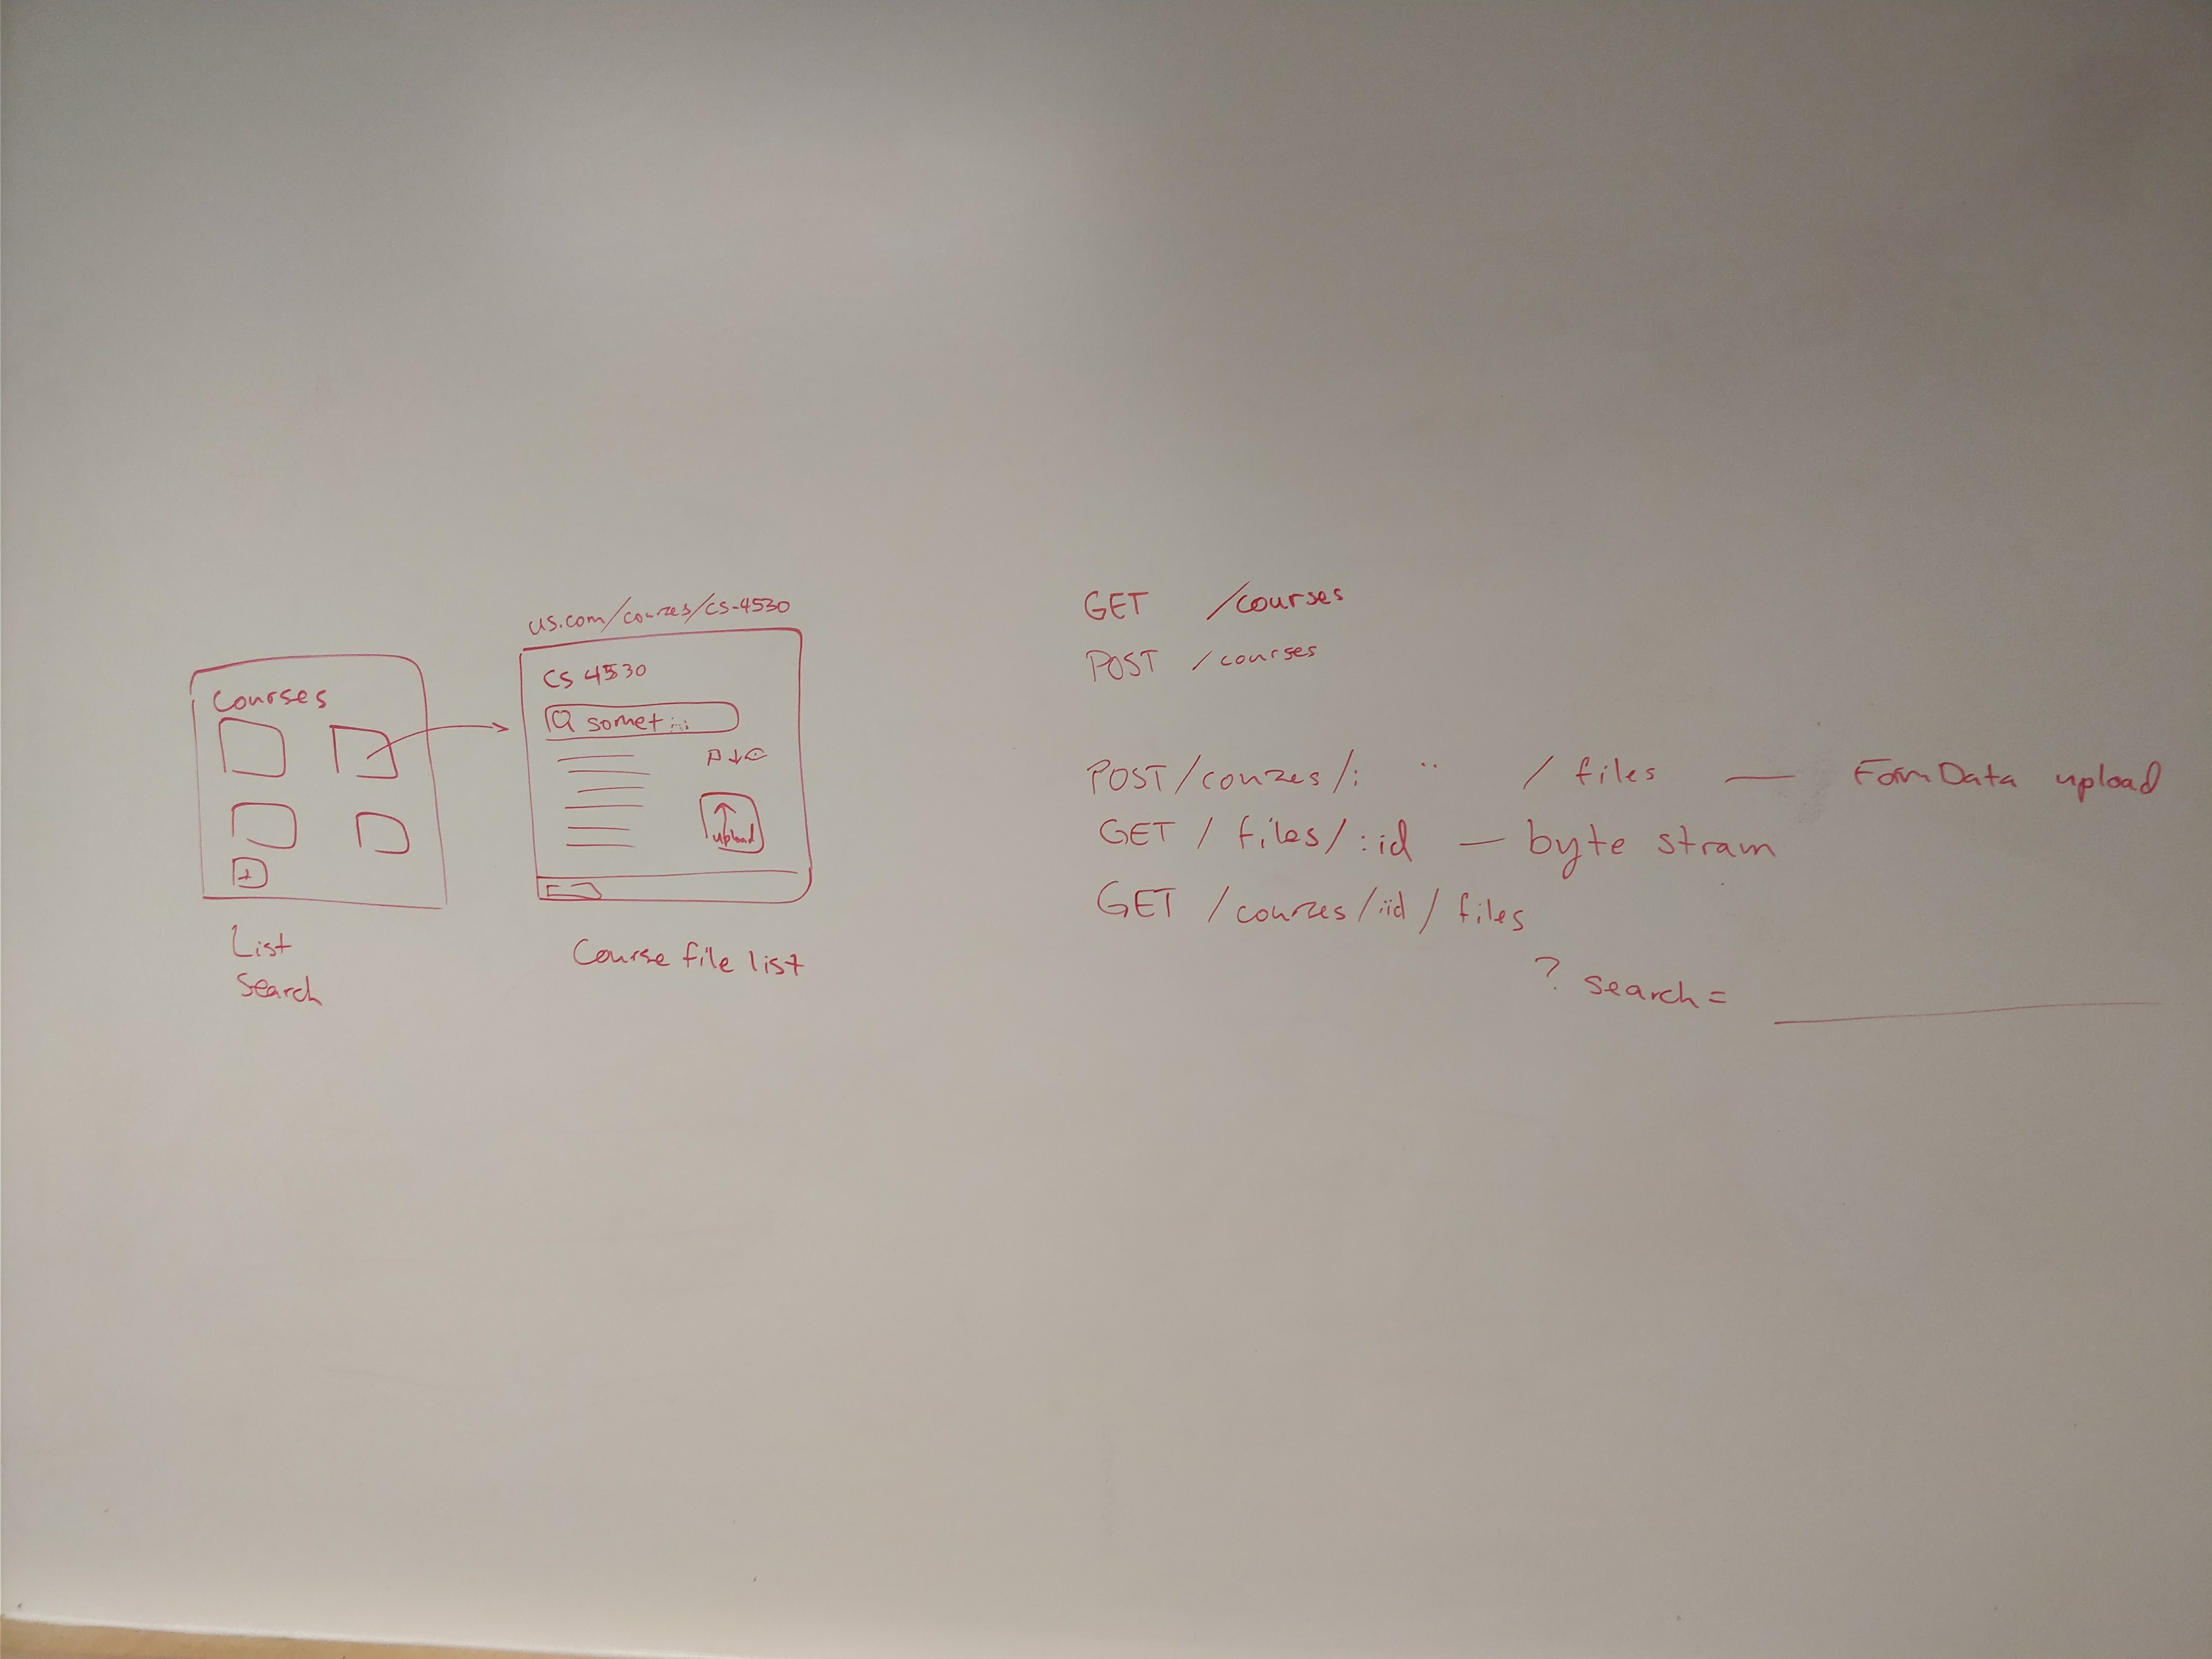 us.com/courses/cs-4530
Courses
+
List
Search
CS 4530
somet...
upload
Course file list
GET /courses
POST /courses
POST /courses/: " /files — FormData upload
GET /files/:id — byte stram
GET /courses/:id/files
? search =